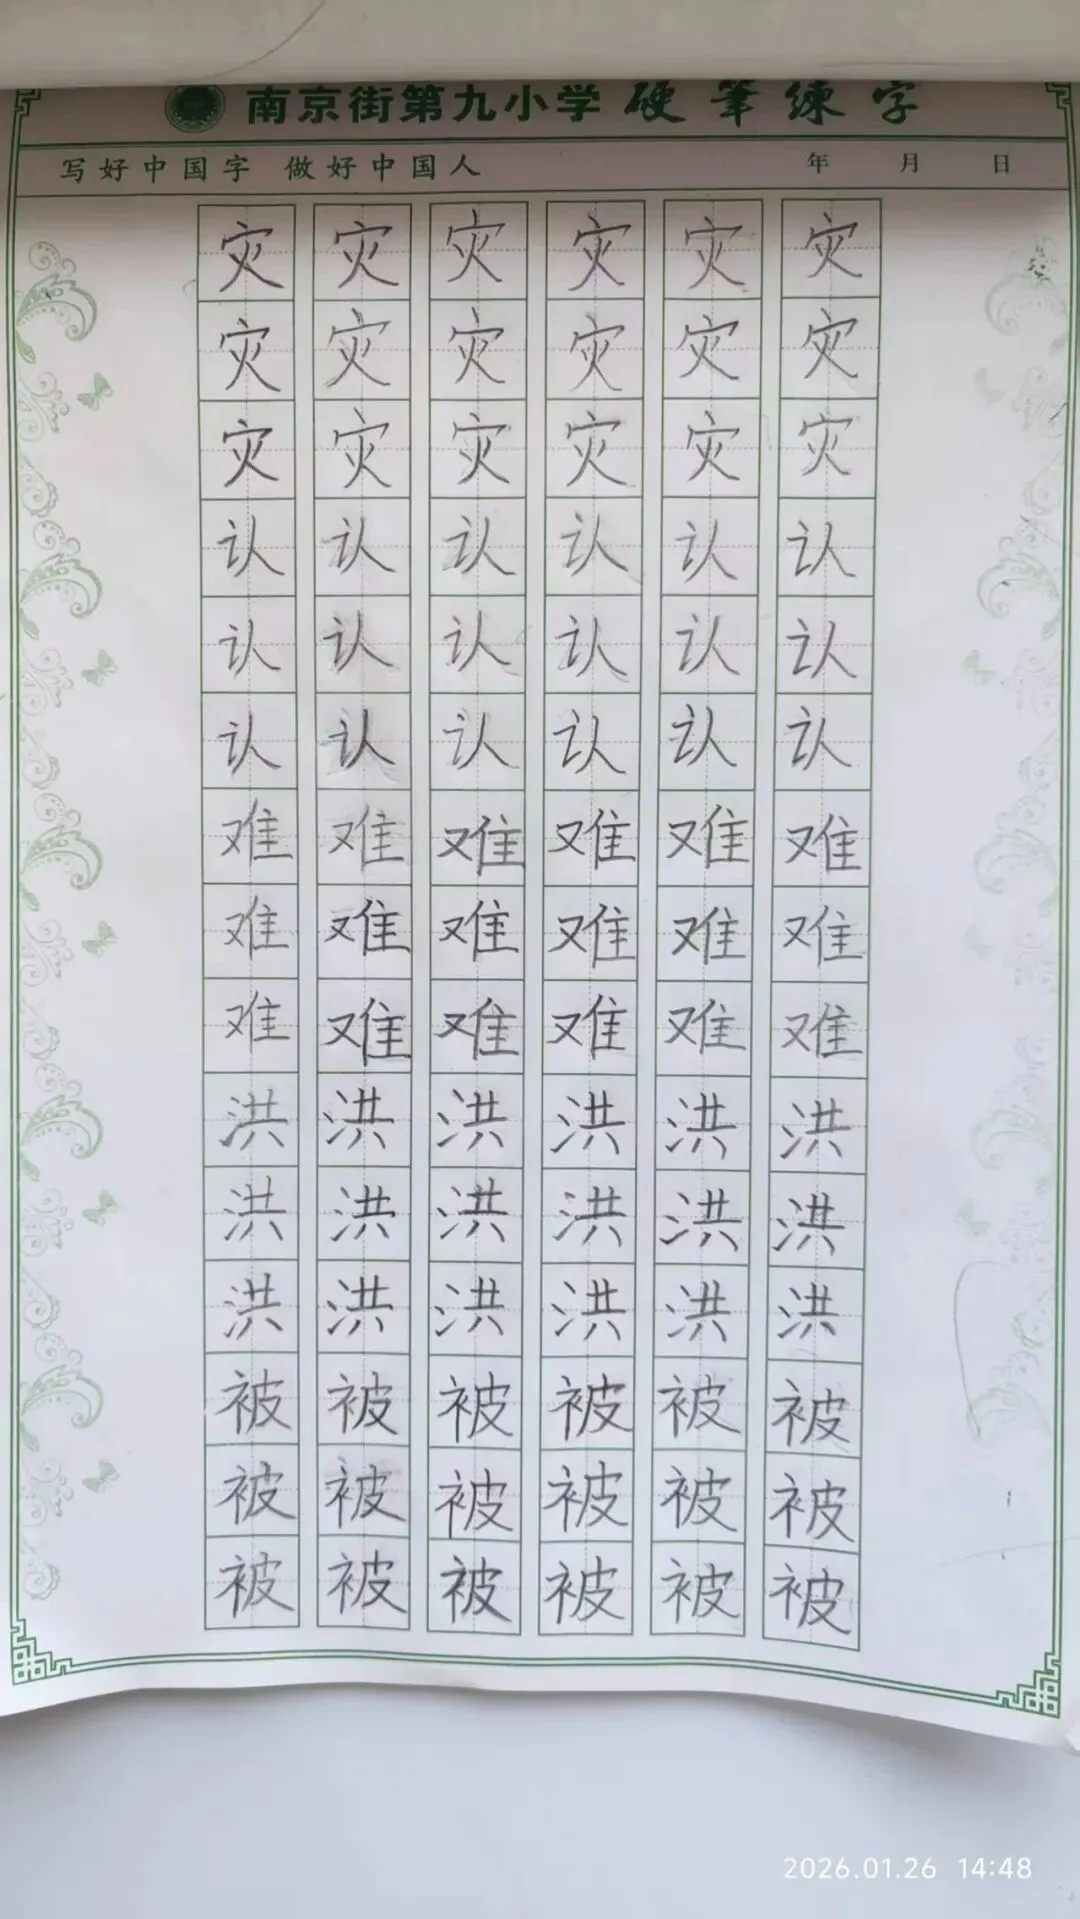 南京街第九小学 硬筆練字
写好中国字 做好中国人 年 月 日
灾 灾 灾 灾 灾 灾
灾 灾 灾 灾 灾 灾
灾 灾 灾 灾 灾 灾
认 认 认 认 认 认
认 认 认 认 认 认
认 认 认 认 认 认
难 难 难 难 难 难
难 难 难 难 难 难
难 难 难 难 难 难
洪 洪 洪 洪 洪 洪
洪 洪 洪 洪 洪 洪
洪 洪 洪 洪 洪 洪
被 被 被 被 被 被
被 被 被 被 被 被
被 被 被 被 被 被
2026.01.26 14:48